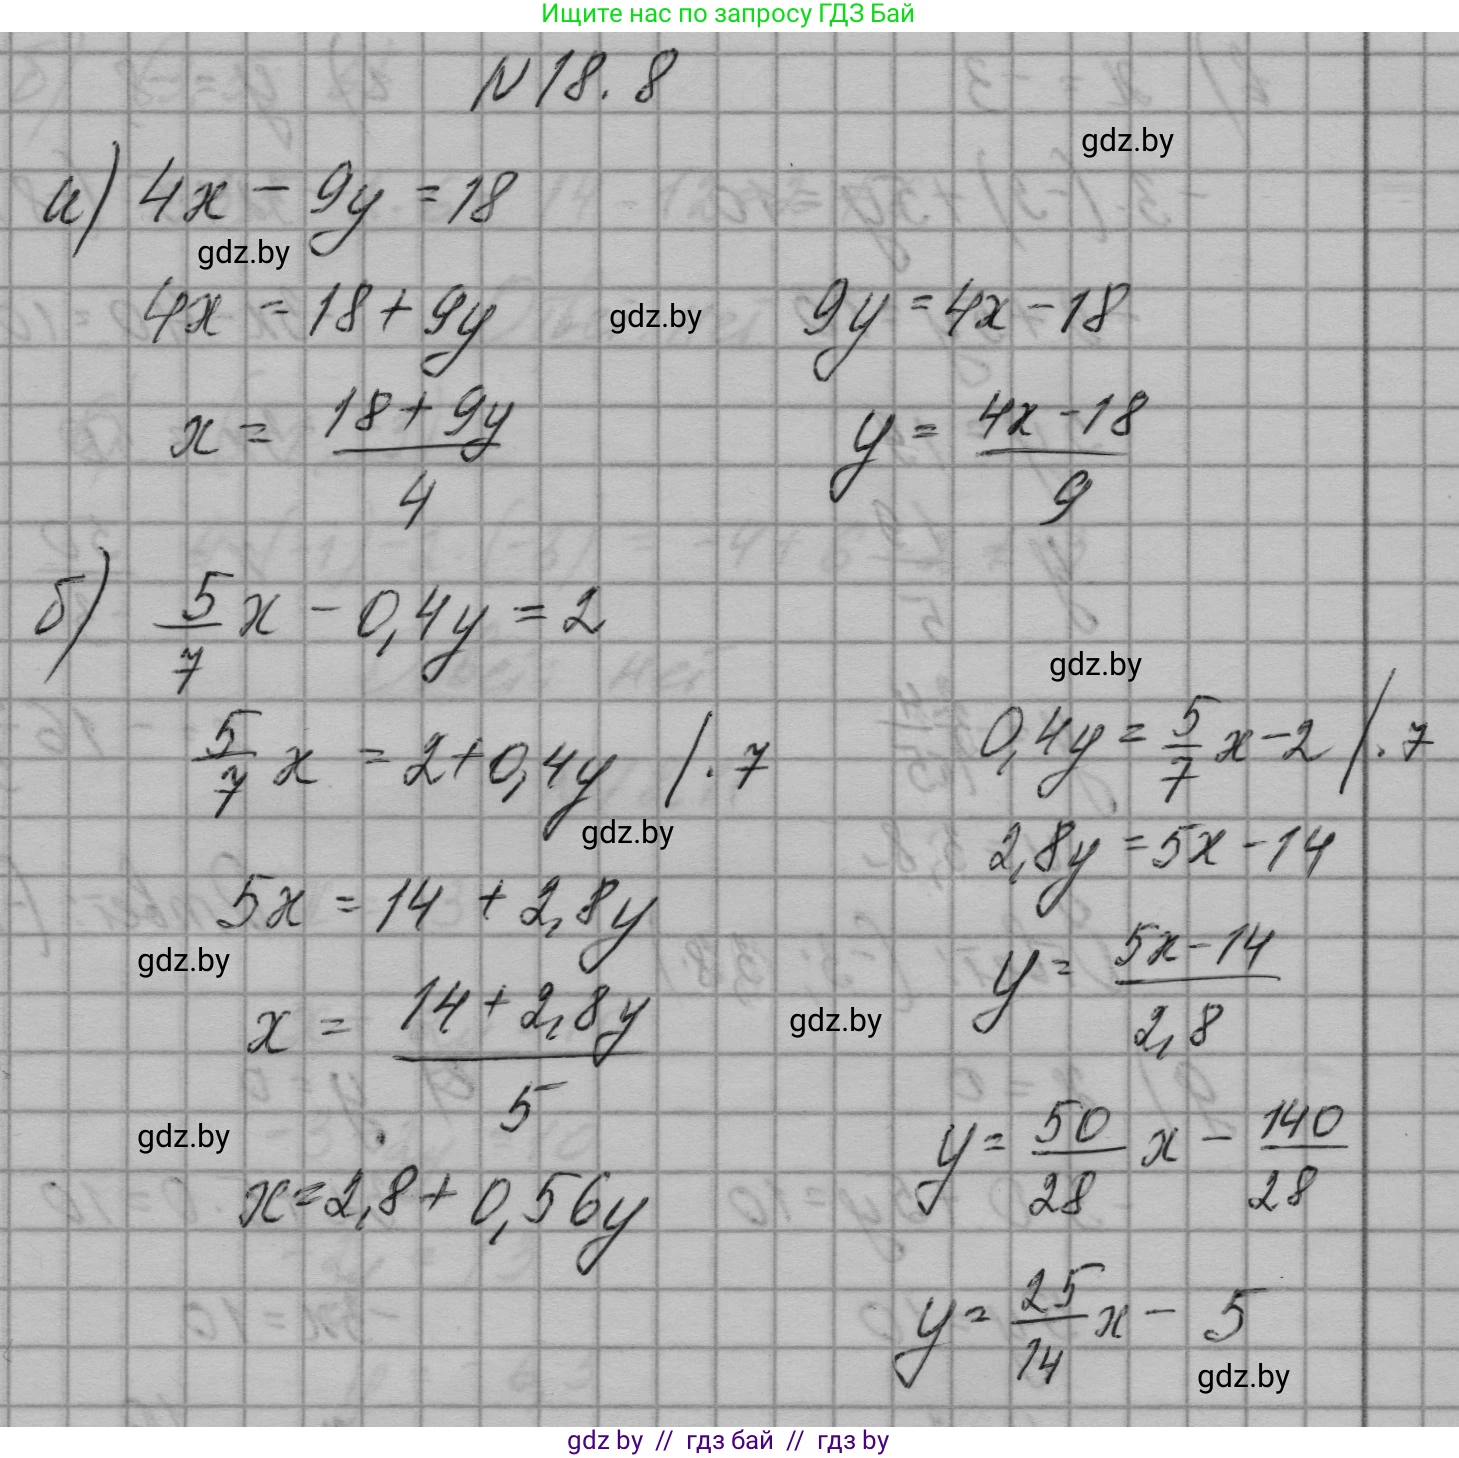 Ищите нас по запросу ГДЗ Бай
N 18.8
gdz.by
а) 4x - 9y = 18
gdz.by
4x = 18 + 9y
gdz.by
9y = 4x - 18
x = (18 + 9y)/4
y = (4x - 18)/9
б) 5/7 x - 0,4y = 2
gdz.by
5/7 x = 2 + 0,4y | · 7
0,4y = 5/7 x - 2 | · 7
gdz.by
2,8y = 5x - 14
5x = 14 + 2,8y
gdz.by
y = (5x - 14)/2,8
x = (14 + 2,8y)/5
gdz.by
gdz.by
y = 50/28 x - 140/28
x = 2,8 + 0,56y
y = 25/14 x - 5
gdz.by
gdz by // гдз бай // гдз by